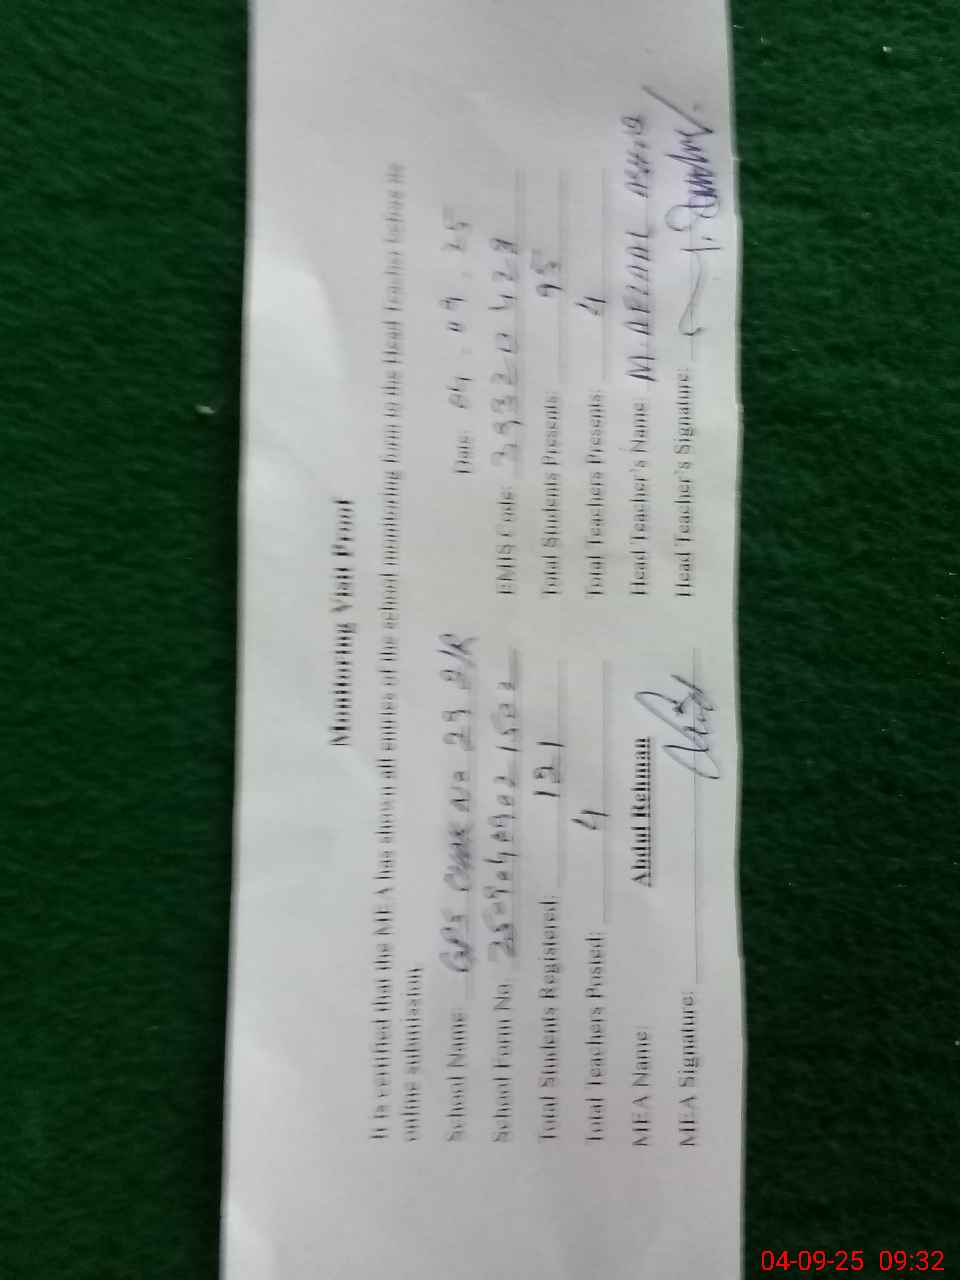 Monitoring Visit Proof
It is certified that the MEA has shown all entries of the school monitoring form to the Head Teacher before its
online submission.
School Name: GPS CHAK No 29 Date: 04.09.25
School Form No. EMIS Code:
Total Students Registered: 121 Total Students Presents: 95
Total Teachers Posted: 4 Total Teachers Presents: 4
MEA Name: Abdul Rehman Head Teacher's Name: M.
MEA Signature: Head Teacher's Signature:
04-09-25 09:32